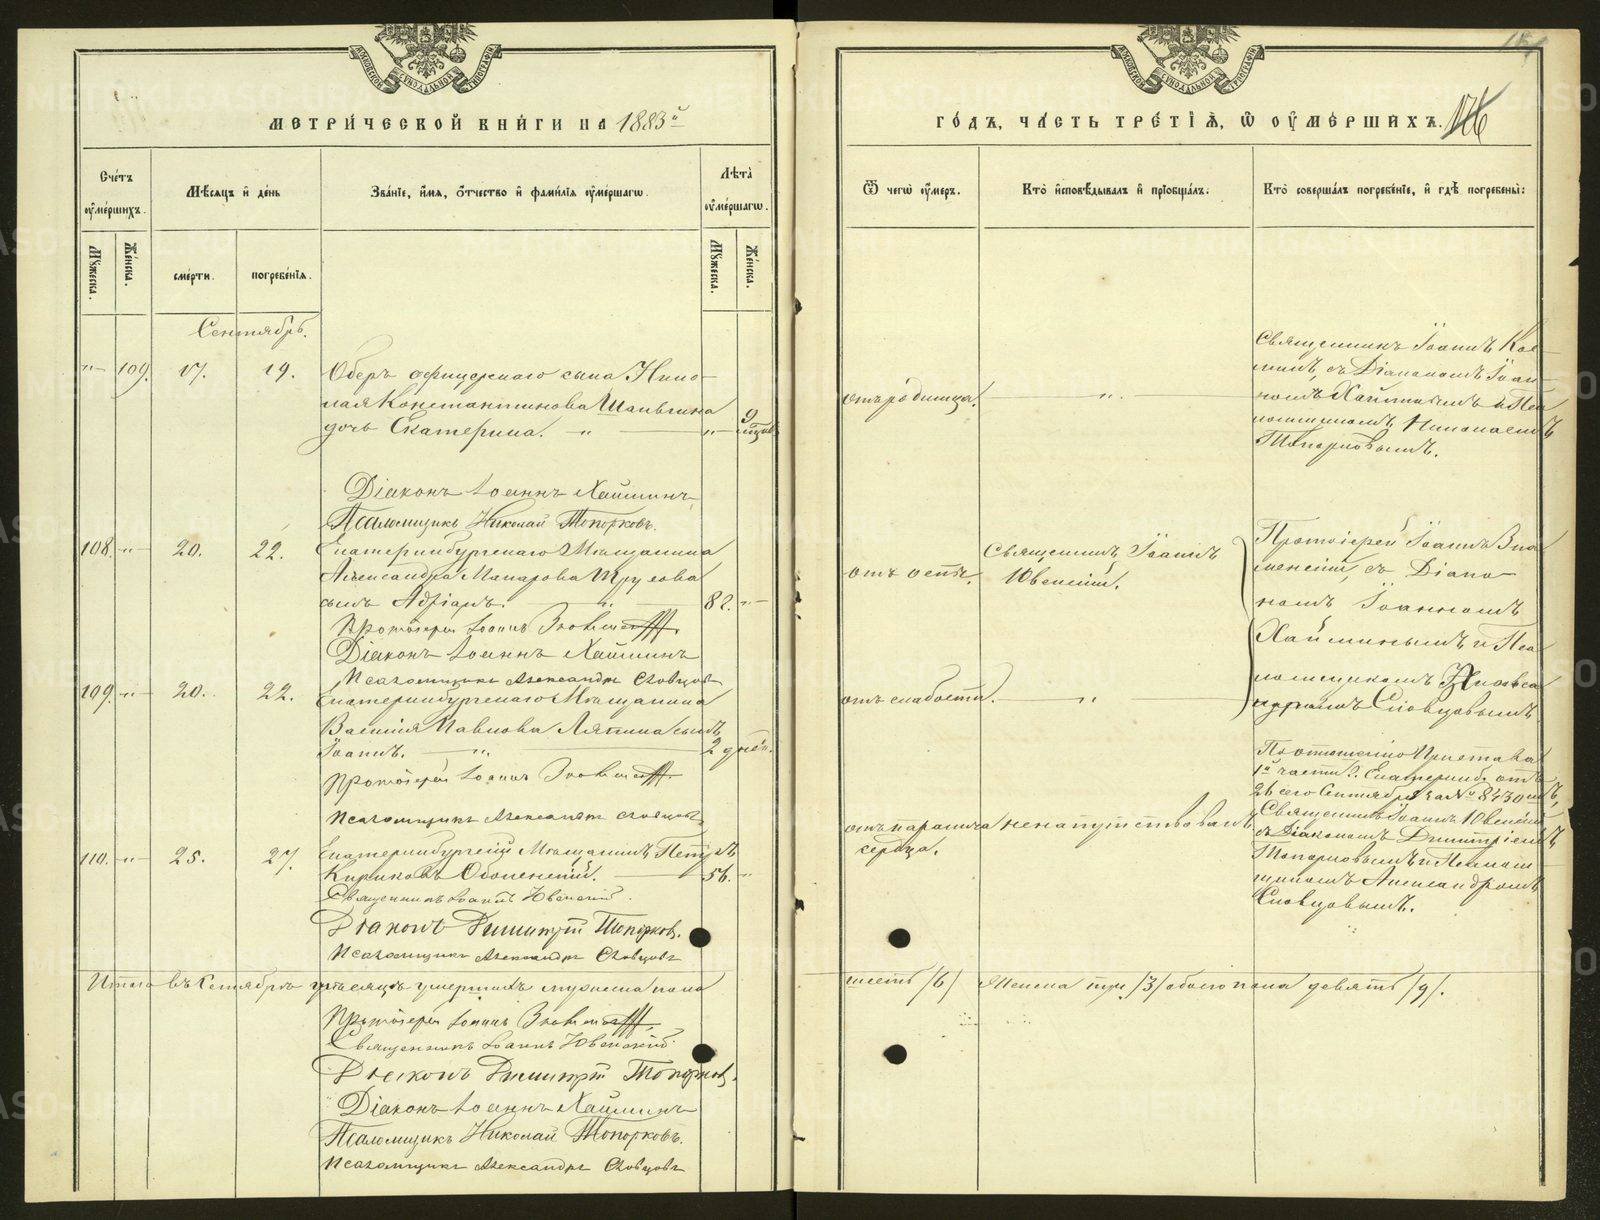 МЕТРИ́ЧЕСКОЙ КНИ́ГИ НА 1883й
Сче́тъ ᲂу҆ме́ршихъ.
Мѣ́сяцъ и҆ де́нь
Зва́нїе, и҆́мя, ѻ҆́тчество и҆ фами́лїя ᲂу҆ме́ршагѡ.
Лѣта̀ ᲂу҆ме́ршагѡ.
Мꙋ́жеска.
Же́нска.
сме́рти.
погребе́нїя.
Мꙋ́жеска.
Же́нска.
Сентябрь.
"
109.
17.
19.
Оберъ офицерскаго сына Нико-
лая Константинова
дочь Екатерина. "
"
9
Дiаконъ Iоаннъ Хайминъ
Псаломщикъ Николай Топорковъ.
108.
"
20.
22.
Екатеринбургскаго Мѣщанина
Александра Макарова
сынъ Адрiанъ. "
82.
"
Протоiерей Iоаннъ
Дiаконъ Iоаннъ Хайминъ
Псаломщикъ Александръ Словцовъ
109.
"
20.
22.
Екатеринбургскаго Мѣщанина
Василiя Павлова Ляпина сынъ
Iоаннъ. "
2 дней.
Протоiерей Iоаннъ
Псаломщикъ Александръ Словцовъ
110.
"
25.
27.
Екатеринбургскiй Мѣщанинъ Петръ
Кириковъ Оболенскiй.
56.
"
Священникъ Iоаннъ Ювенскiй.
Дiаконъ Димитрiй Топорковъ.
Псаломщикъ Александръ Словцовъ
Итого въ Сентябрѣ мѣсяцѣ умершихъ мужеска пола
Протоiерей Iоаннъ
Священникъ Iоаннъ Ювенскiй.
Дiаконъ Димитрiй Топорковъ.
Дiаконъ Iоаннъ Хайминъ
Псаломщикъ Николай Топорковъ.
Псаломщикъ Александръ Словцовъ
ГО́ДЪ, ЧА́СТЬ ТРЕ́ТЇѦ, Ѡ҆ ОУ҆МЕ́РШИХЪ.
176
Ѿ чегѡ̀ ᲂу҆́меръ.
Кто̀ и҆сповѣ́дывалъ и҆ прїѡбща́лъ:
Кто̀ соверша́лъ погребе́нїе, и҆ гдѣ̀ погребены̀:
отъ родимца.
"
Священникъ Iоаннъ Кас-
, съ Дiакономъ Iоан-
номъ Хайминымъ и Пса
ломщикомъ Николаемъ
Топорковымъ.
отъ оспы.
Священникъ Iоаннъ
Ювенскiй.
Протоiерей Iоаннъ Зна
менскiй, съ Дiако-
номъ Iоанномъ
Хайминымъ и Пса
ломщикомъ Алекса
ндромъ Словцовымъ
отъ слабости.
"
По отношенiю Пристава
1й части г. Екатеринб. отъ
26 сего Сентября за № 8430
Священникъ Iоаннъ Ювенскiй
съ Дiакономъ Димитрiемъ
Топорковымъ и Псалом
щикомъ Александромъ
Словцовымъ.
отъ паралича
сердца.
ненапутствованъ
шесть /6/ Женска три /3/ обоего пола девять /9/.